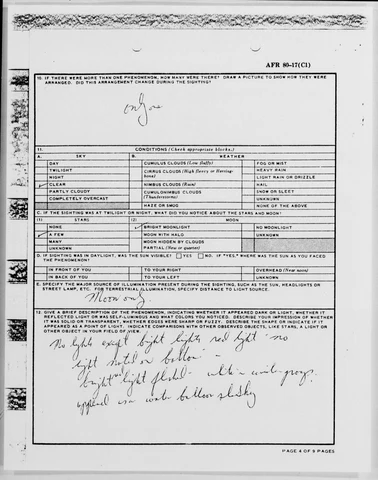 AFR 80-17(C1)
10. IF THERE WERE MORE THAN ONE PHENOMENON, HOW MANY WERE THERE? DRAW A PICTURE TO SHOW HOW THEY WERE
ARRANGED. DID THIS ARRANGEMENT CHANGE DURING THE SIGHTING?
only one
11. CONDITIONS (Check appropriate blocks.)
A. SKY B. WEATHER
DAY CUMULUS CLOUDS (Low fluffy) FOG OR MIST
TWILIGHT CIRRUS CLOUDS (High fleecy or Herring- HEAVY RAIN
NIGHT bone) LIGHT RAIN OR DRIZZLE
✓ CLEAR NIMBUS CLOUDS (Rain) HAIL
PARTLY CLOUDY CUMULONIMBUS CLOUDS SNOW OR SLEET
COMPLETELY OVERCAST (Thunderstorms) UNKNOWN
HAZE OR SMOG NONE OF THE ABOVE
C. IF THE SIGHTING WAS AT TWILIGHT OR NIGHT, WHAT DID YOU NOTICE ABOUT THE STARS AND MOON?
(1) STARS (2) MOON
NONE ✓ BRIGHT MOONLIGHT NO MOONLIGHT
✓ A FEW MOON WITH HALO UNKNOWN
MANY MOON HIDDEN BY CLOUDS
UNKNOWN PARTIAL (New or quarter)
D. IF SIGHTING WAS IN DAYLIGHT, WAS THE SUN VISIBLE? YES NO. IF "YES," WHERE WAS THE SUN AS YOU FACED
THE PHENOMENON?
IN FRONT OF YOU TO YOUR RIGHT OVERHEAD (Near noon)
IN BACK OF YOU TO YOUR LEFT UNKNOWN
E. SPECIFY THE MAJOR SOURCE OF ILLUMINATION PRESENT DURING THE SIGHTING, SUCH AS THE SUN, HEADLIGHTS OR
STREET LAMP, ETC. FOR TERRESTRIAL ILLUMINATION, SPECIFY DISTANCE TO LIGHT SOURCE.
Moon only
12. GIVE A BRIEF DESCRIPTION OF THE PHENOMENON, INDICATING WHETHER IT APPEARED DARK OR LIGHT, WHETHER IT
REFLECTED LIGHT OR WAS SELF-LUMINOUS AND WHAT COLORS YOU NOTICED. DESCRIBE YOUR IMPRESSION OF WHETHER
IT WAS SOLID OR TRANSPARENT, WHETHER EDGES WERE SHARP OR FUZZY. DESCRIBE THE SHAPE OR INDICATE IF IT
APPEARED AS A POINT OF LIGHT. INDICATE COMPARISONS WITH OTHER OBSERVED OBJECTS, LIKE STARS, A LIGHT OR
OTHER OBJECT IN YOUR FIELD OF VIEW.
No lights except bright lights red light - no
light on balloon -
bright light
appeared balloon
PAGE 4 OF 9 PAGES